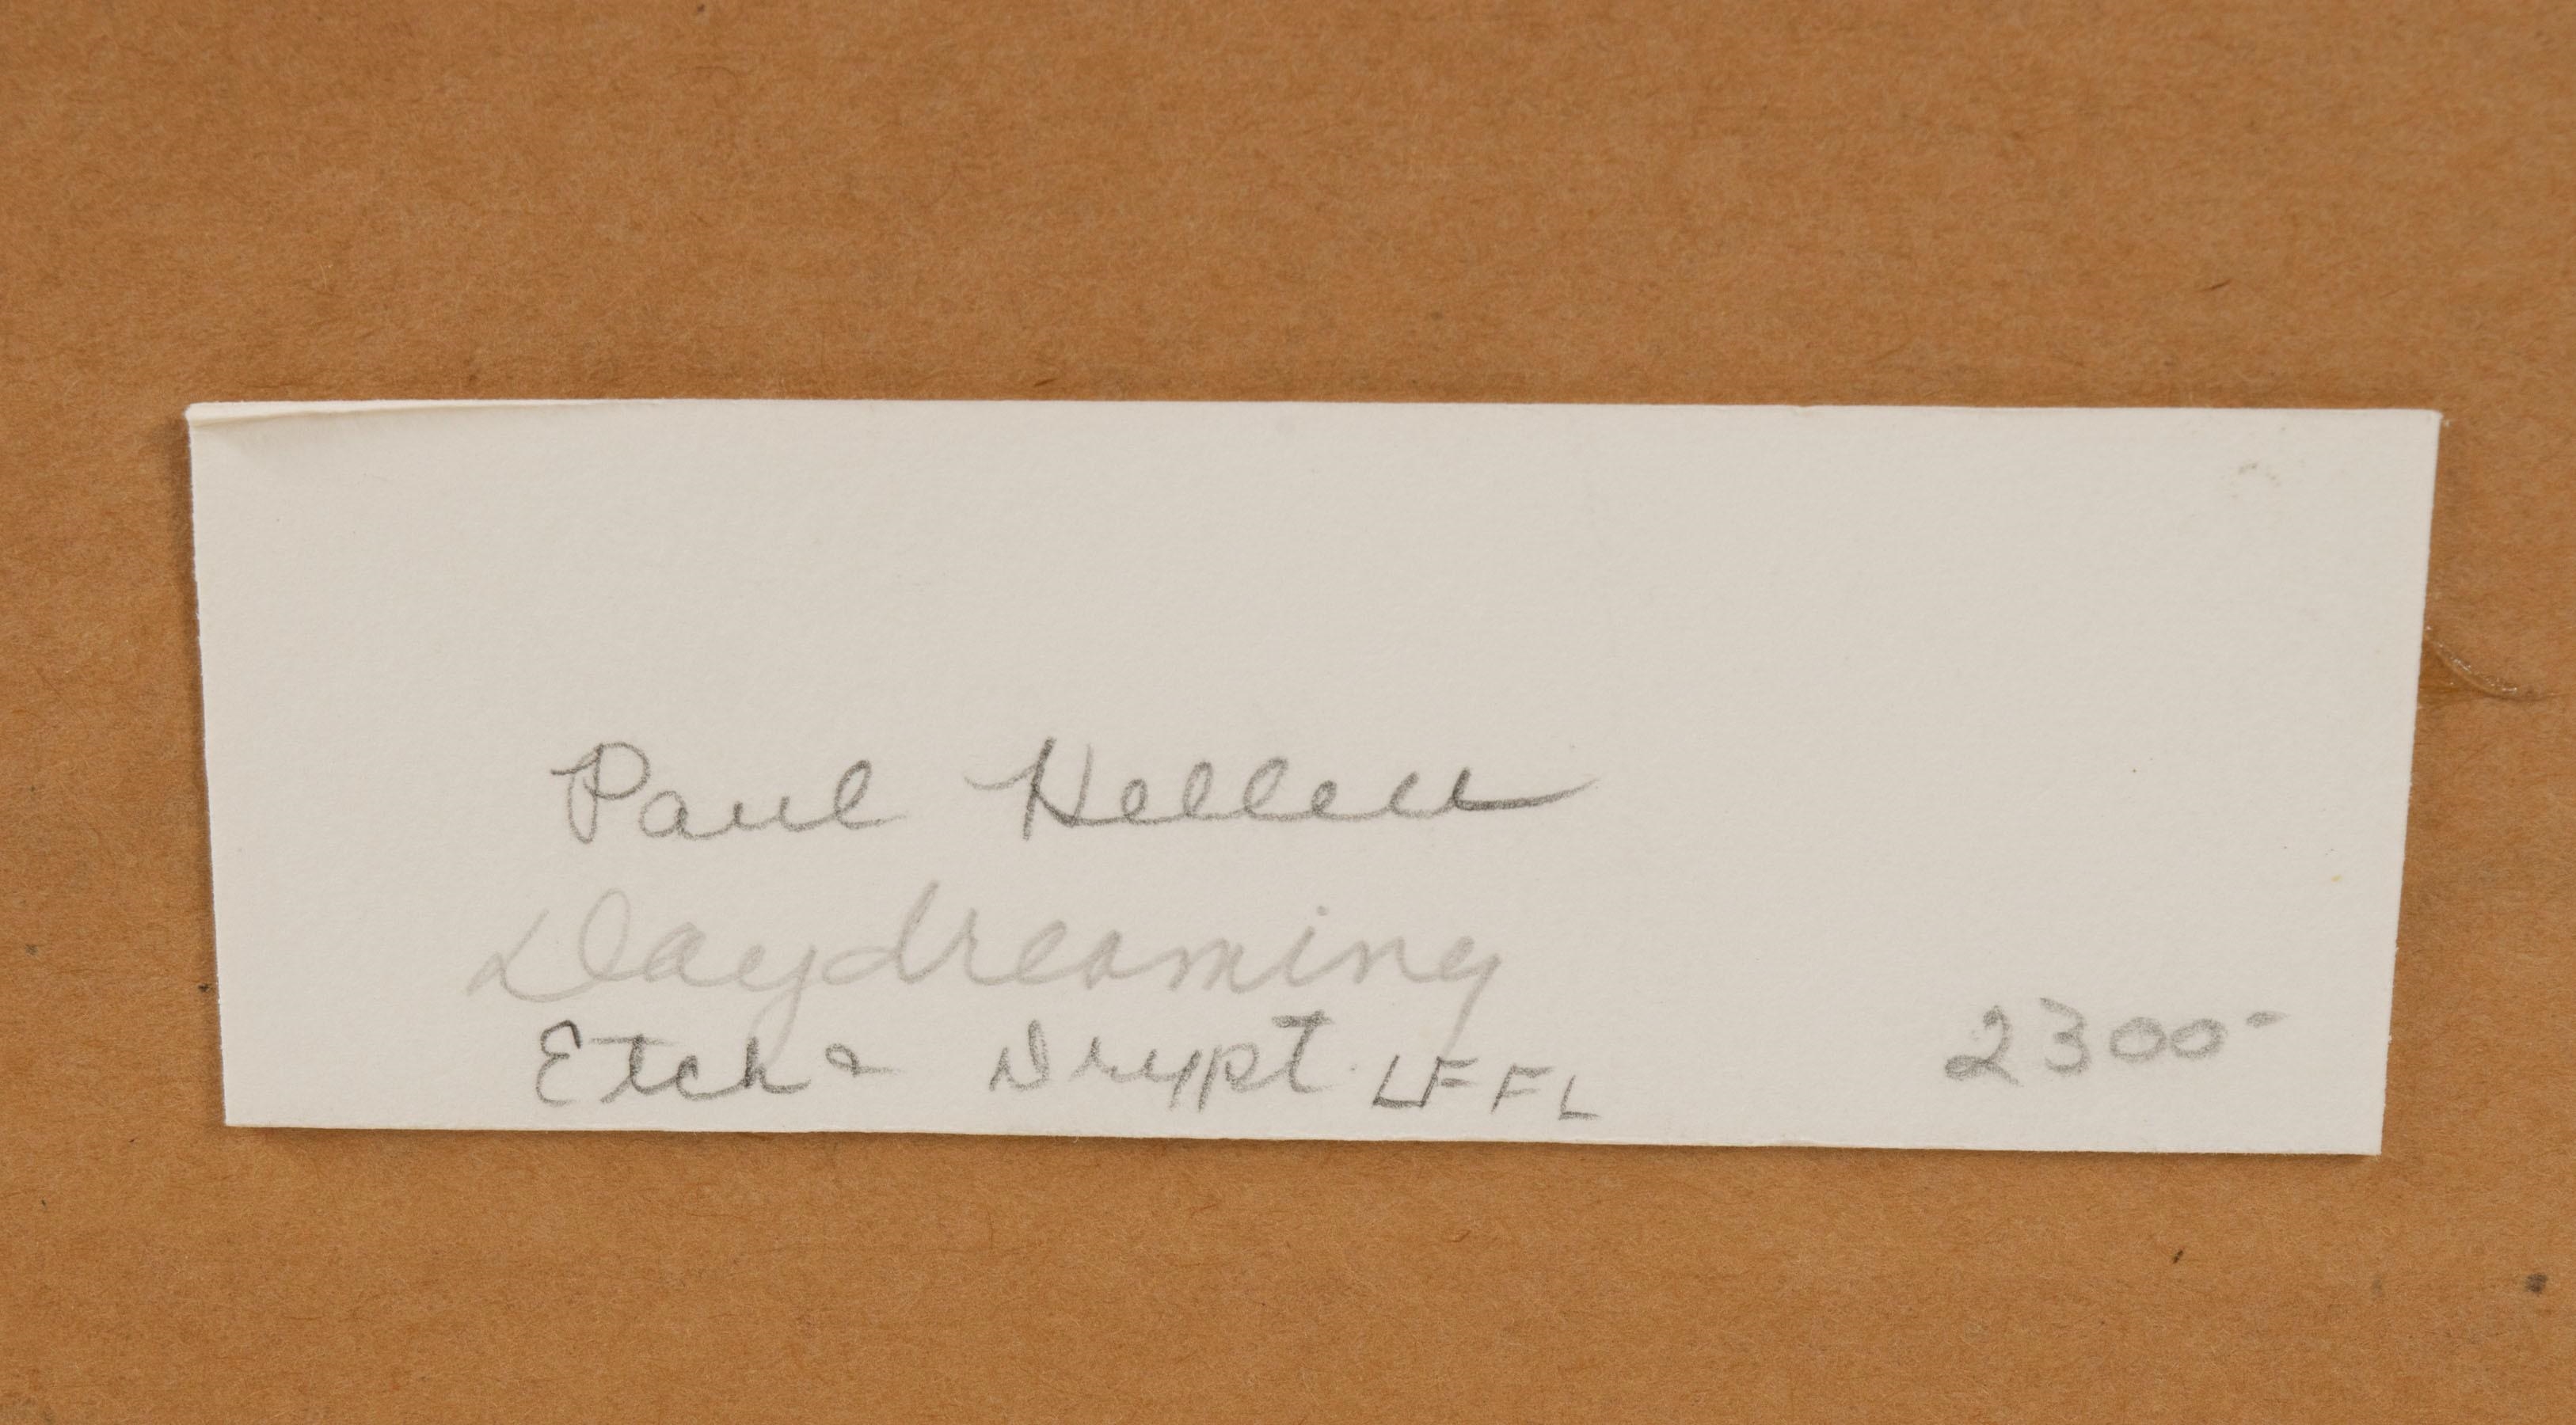 Paul Helleu
Daydreaming
Etch & Drypt. LFFL
2300-